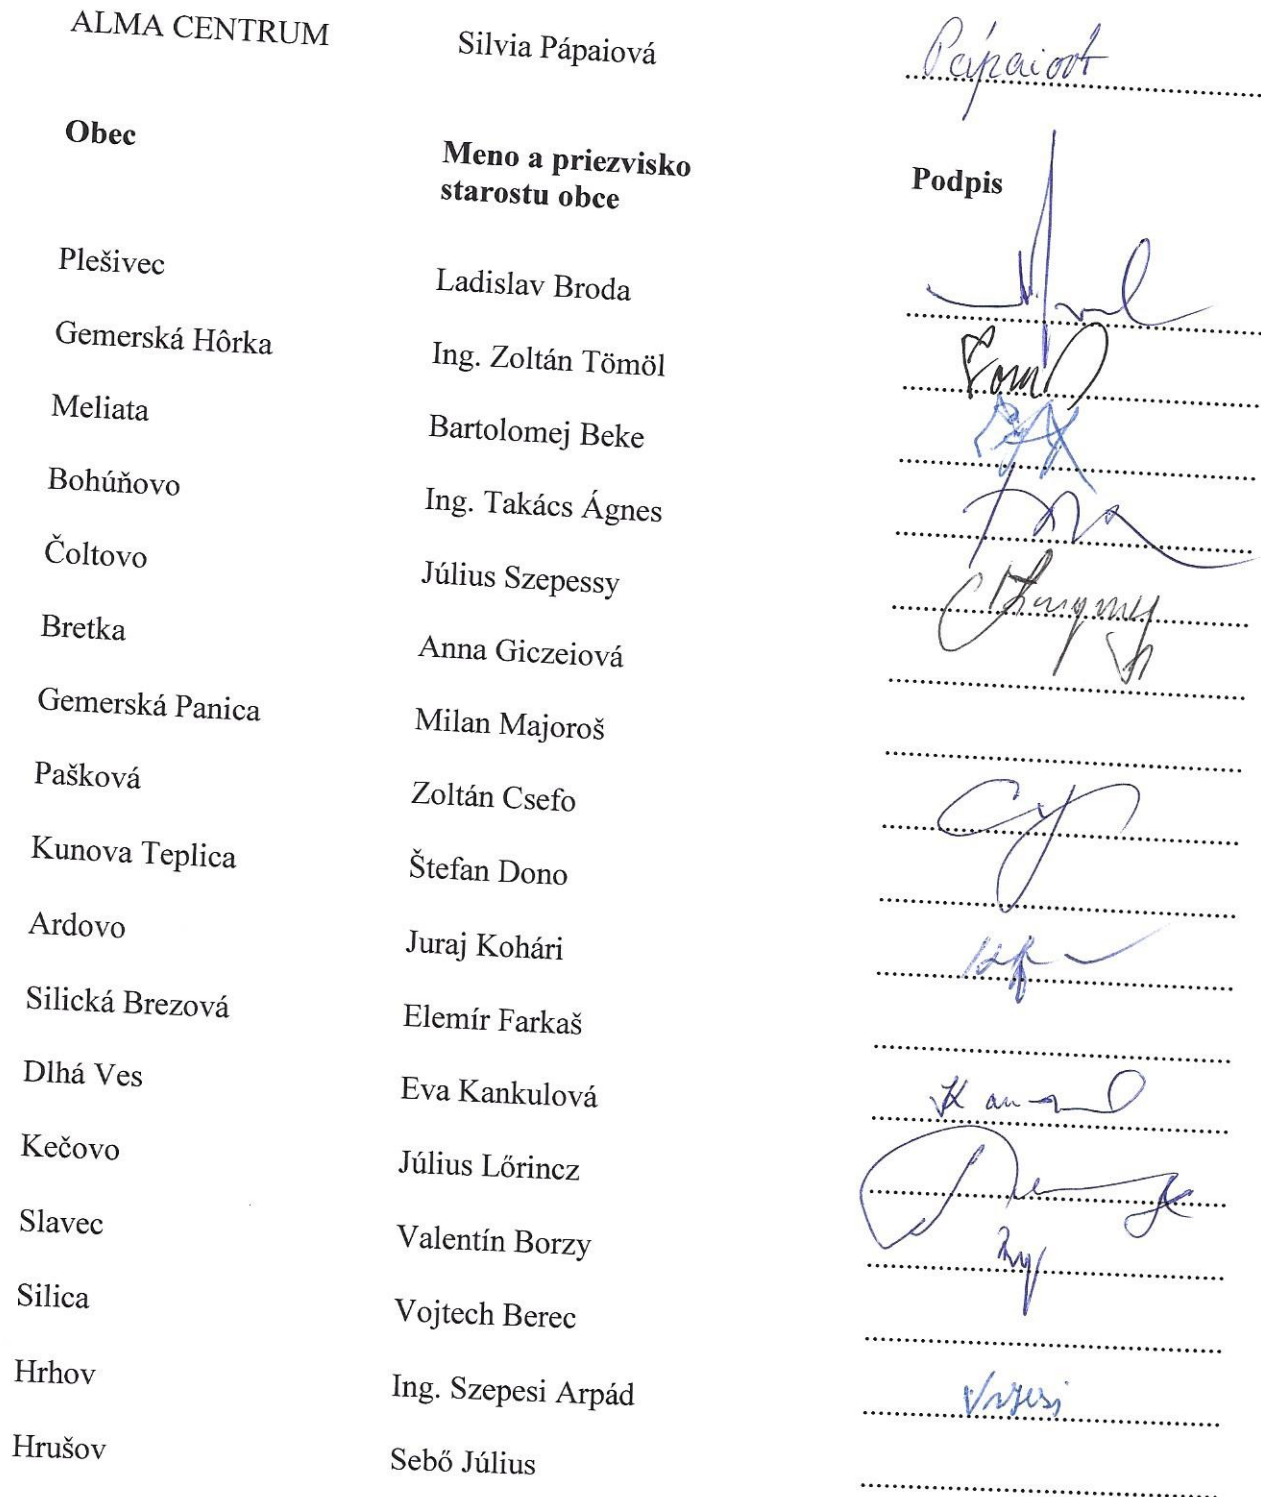 ALMA CENTRUM Silvia Pápaiová Pápaiová
Obec Meno a priezvisko Podpis
starostu obce
Plešivec Ladislav Broda
Gemerská Hôrka Ing. Zoltán Tömöl
Meliata Bartolomej Beke
Bohúňovo Ing. Takács Ágnes
Čoltovo Július Szepessy
Bretka Anna Giczeiová
Gemerská Panica Milan Majoroš
Pašková Zoltán Csefo
Kunova Teplica Štefan Dono
Ardovo Juraj Kohári
Silická Brezová Elemír Farkaš
Dlhá Ves Eva Kankulová
Kečovo Július Lőrincz
Slavec Valentín Borzy
Silica Vojtech Berec
Hrhov Ing. Szepesi Arpád
Hrušov Sebő Július